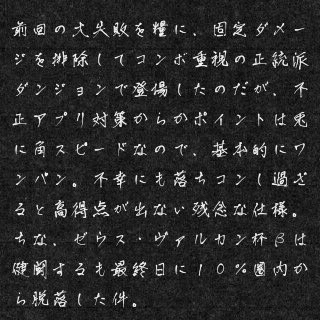 前回の大失敗を糧に、固定ダメー
ジを排除してコンボ重視の正統派
ダンジョンで登場したのだが、不
正アプリ対策からかポイントは兎
に角スピードなので、基本的にワ
ンパン。不幸にも落ちコンし過ぎ
ると高得点が出ない残念な仕様。
ちな、ゼウス・ヴァルカン杯βは
健闘するも最終日に１０％圏内か
ら脱落した件。